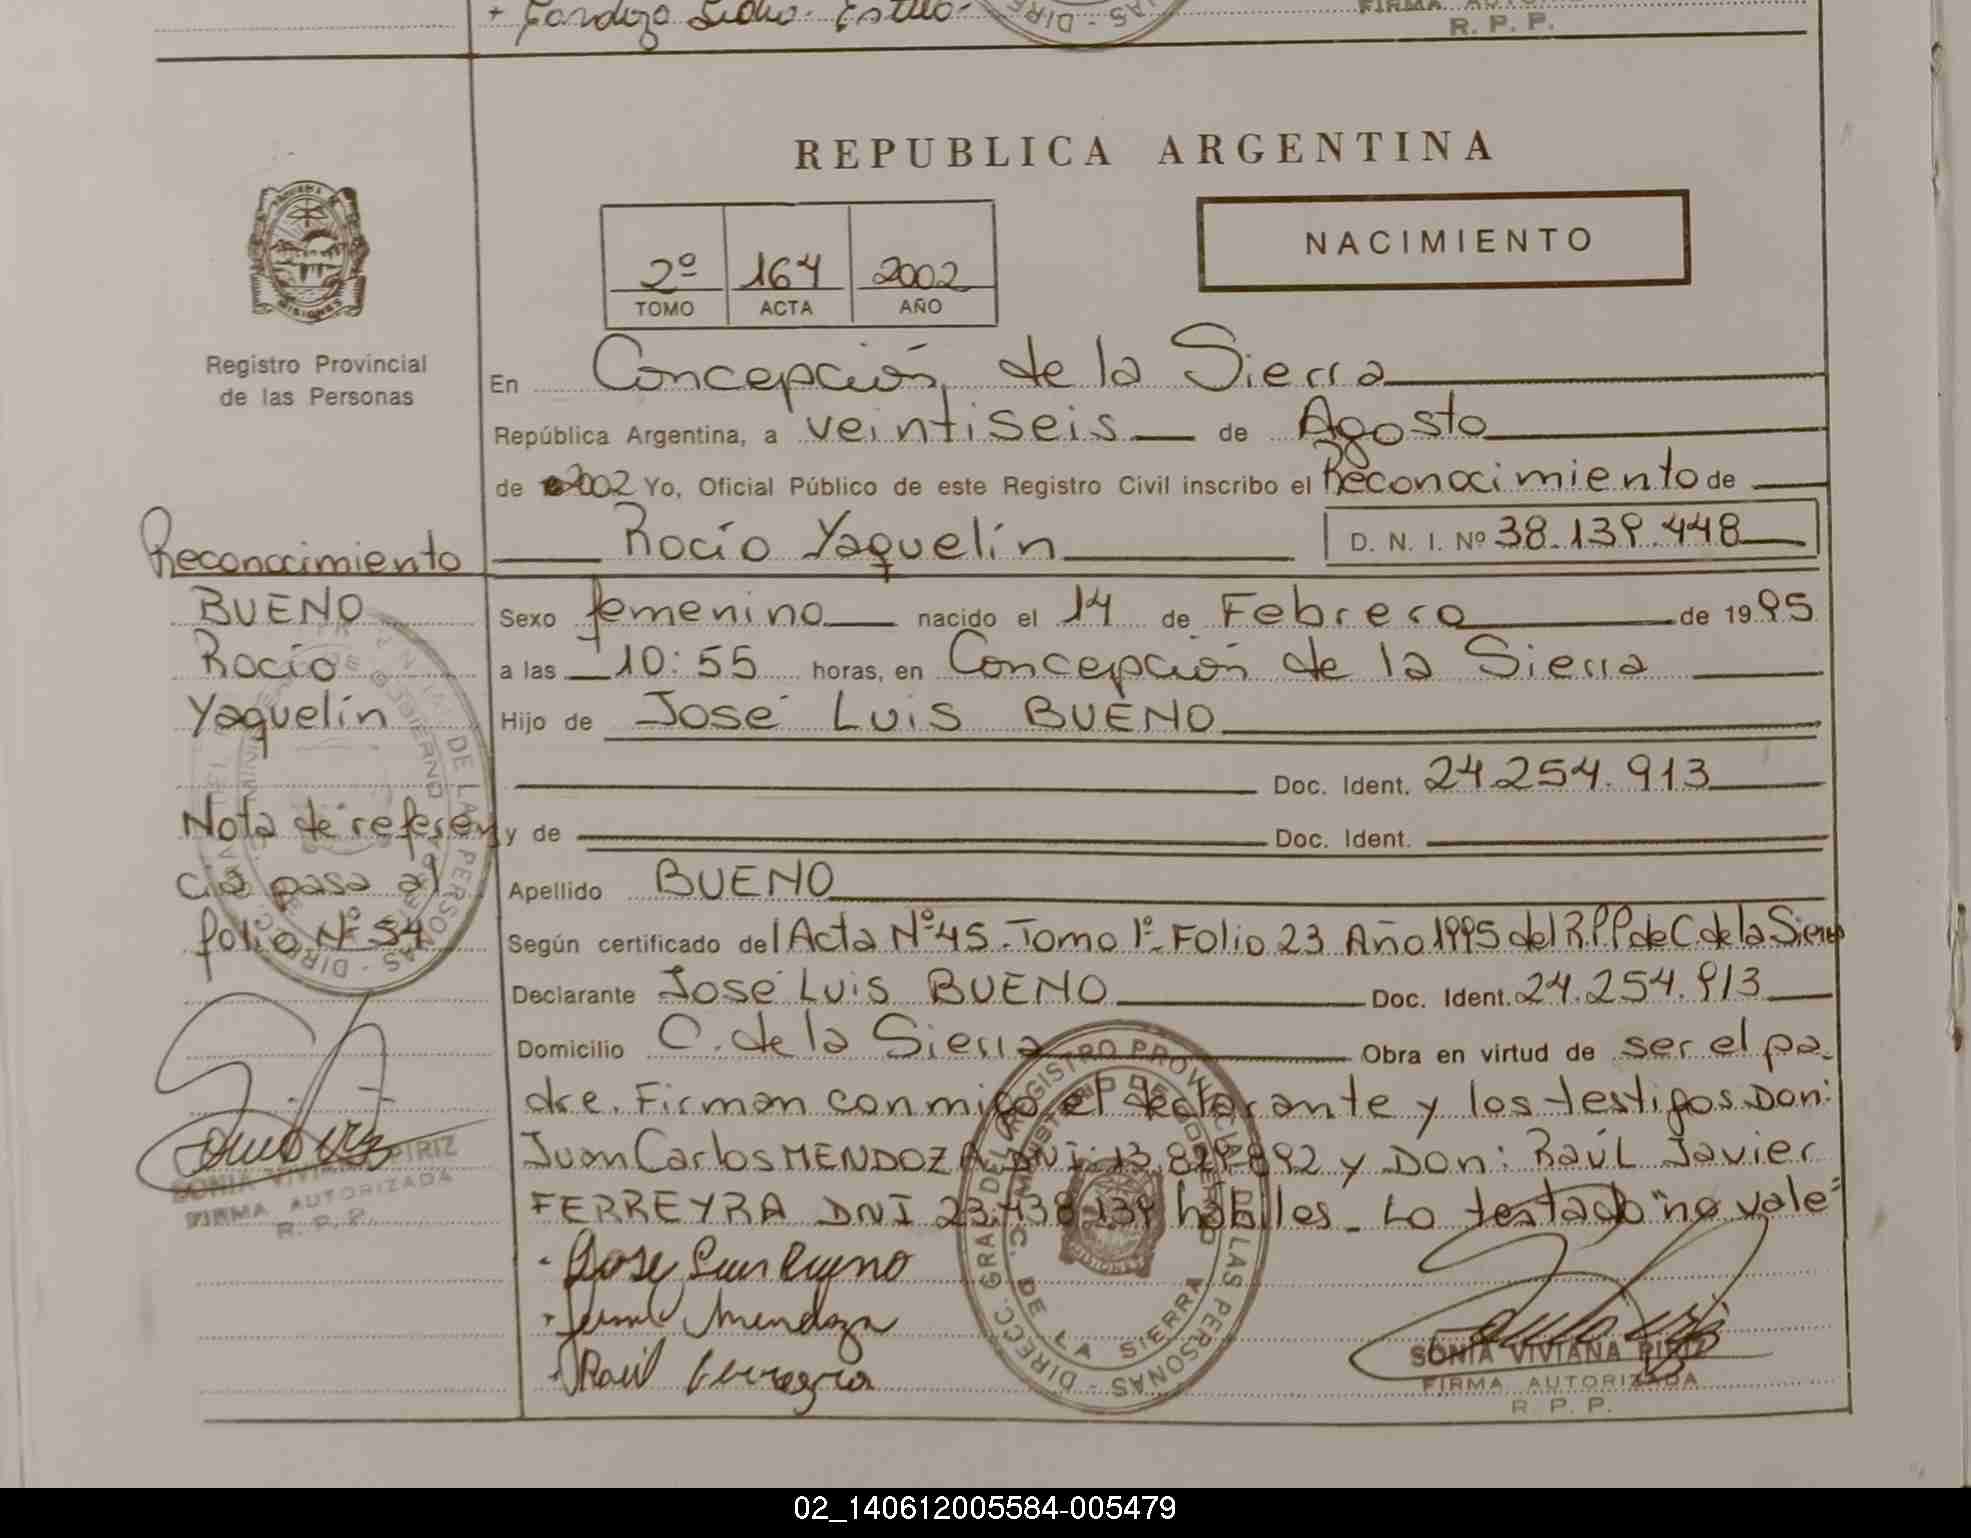 R. P. P.
REPUBLICA ARGENTINA
2º 164 2002
TOMO ACTA AÑO
NACIMIENTO
Registro Provincial
de las Personas
En Concepción de la Sierra
República Argentina, a veintiseis de Agosto
de 2002 Yo, Oficial Público de este Registro Civil inscribo el Reconocimiento de
Rocío Yaquelín D. N. I. Nº 38.139.448
Reconocimiento
BUENO
Rocío
Yaquelín
Nota de referen
cia pasa al
folio Nº 54
SONIA VIVIANA PIRIZ
FIRMA AUTORIZADA
R. P. P.
Sexo femenino nacido el 14 de Febrero de 1995
a las 10:55 horas, en Concepción de la Sierra
Hijo de José Luis BUENO
Doc. Ident. 24.254.913
y de Doc. Ident.
Apellido BUENO
Según certificado del Acta Nº 45. Tomo 1º. Folio 23 Año 1995 del R.P.P de C. de la Sierra
Declarante José Luis BUENO Doc. Ident. 24.254.913
Domicilio C. de la Sierra Obra en virtud de ser el pa-
dre. Firman conmigo el declarante y los testigos Don:
Juan Carlos MENDOZA DNI: y Don: Raúl Javier
FERREYRA DNI habiles. Lo testado "no vale"
Jose Luis Bueno
Mendoza
Raúl Ferreyra
DIRECC. GRAL. DEL REGISTRO PROVINCIAL DE LAS PERSONAS
MINISTERIO DE GOBIERNO
C. DE LA SIERRA
SONIA VIVIANA PIRIZ
FIRMA AUTORIZADA
R. P. P.
02_140612005584-005479